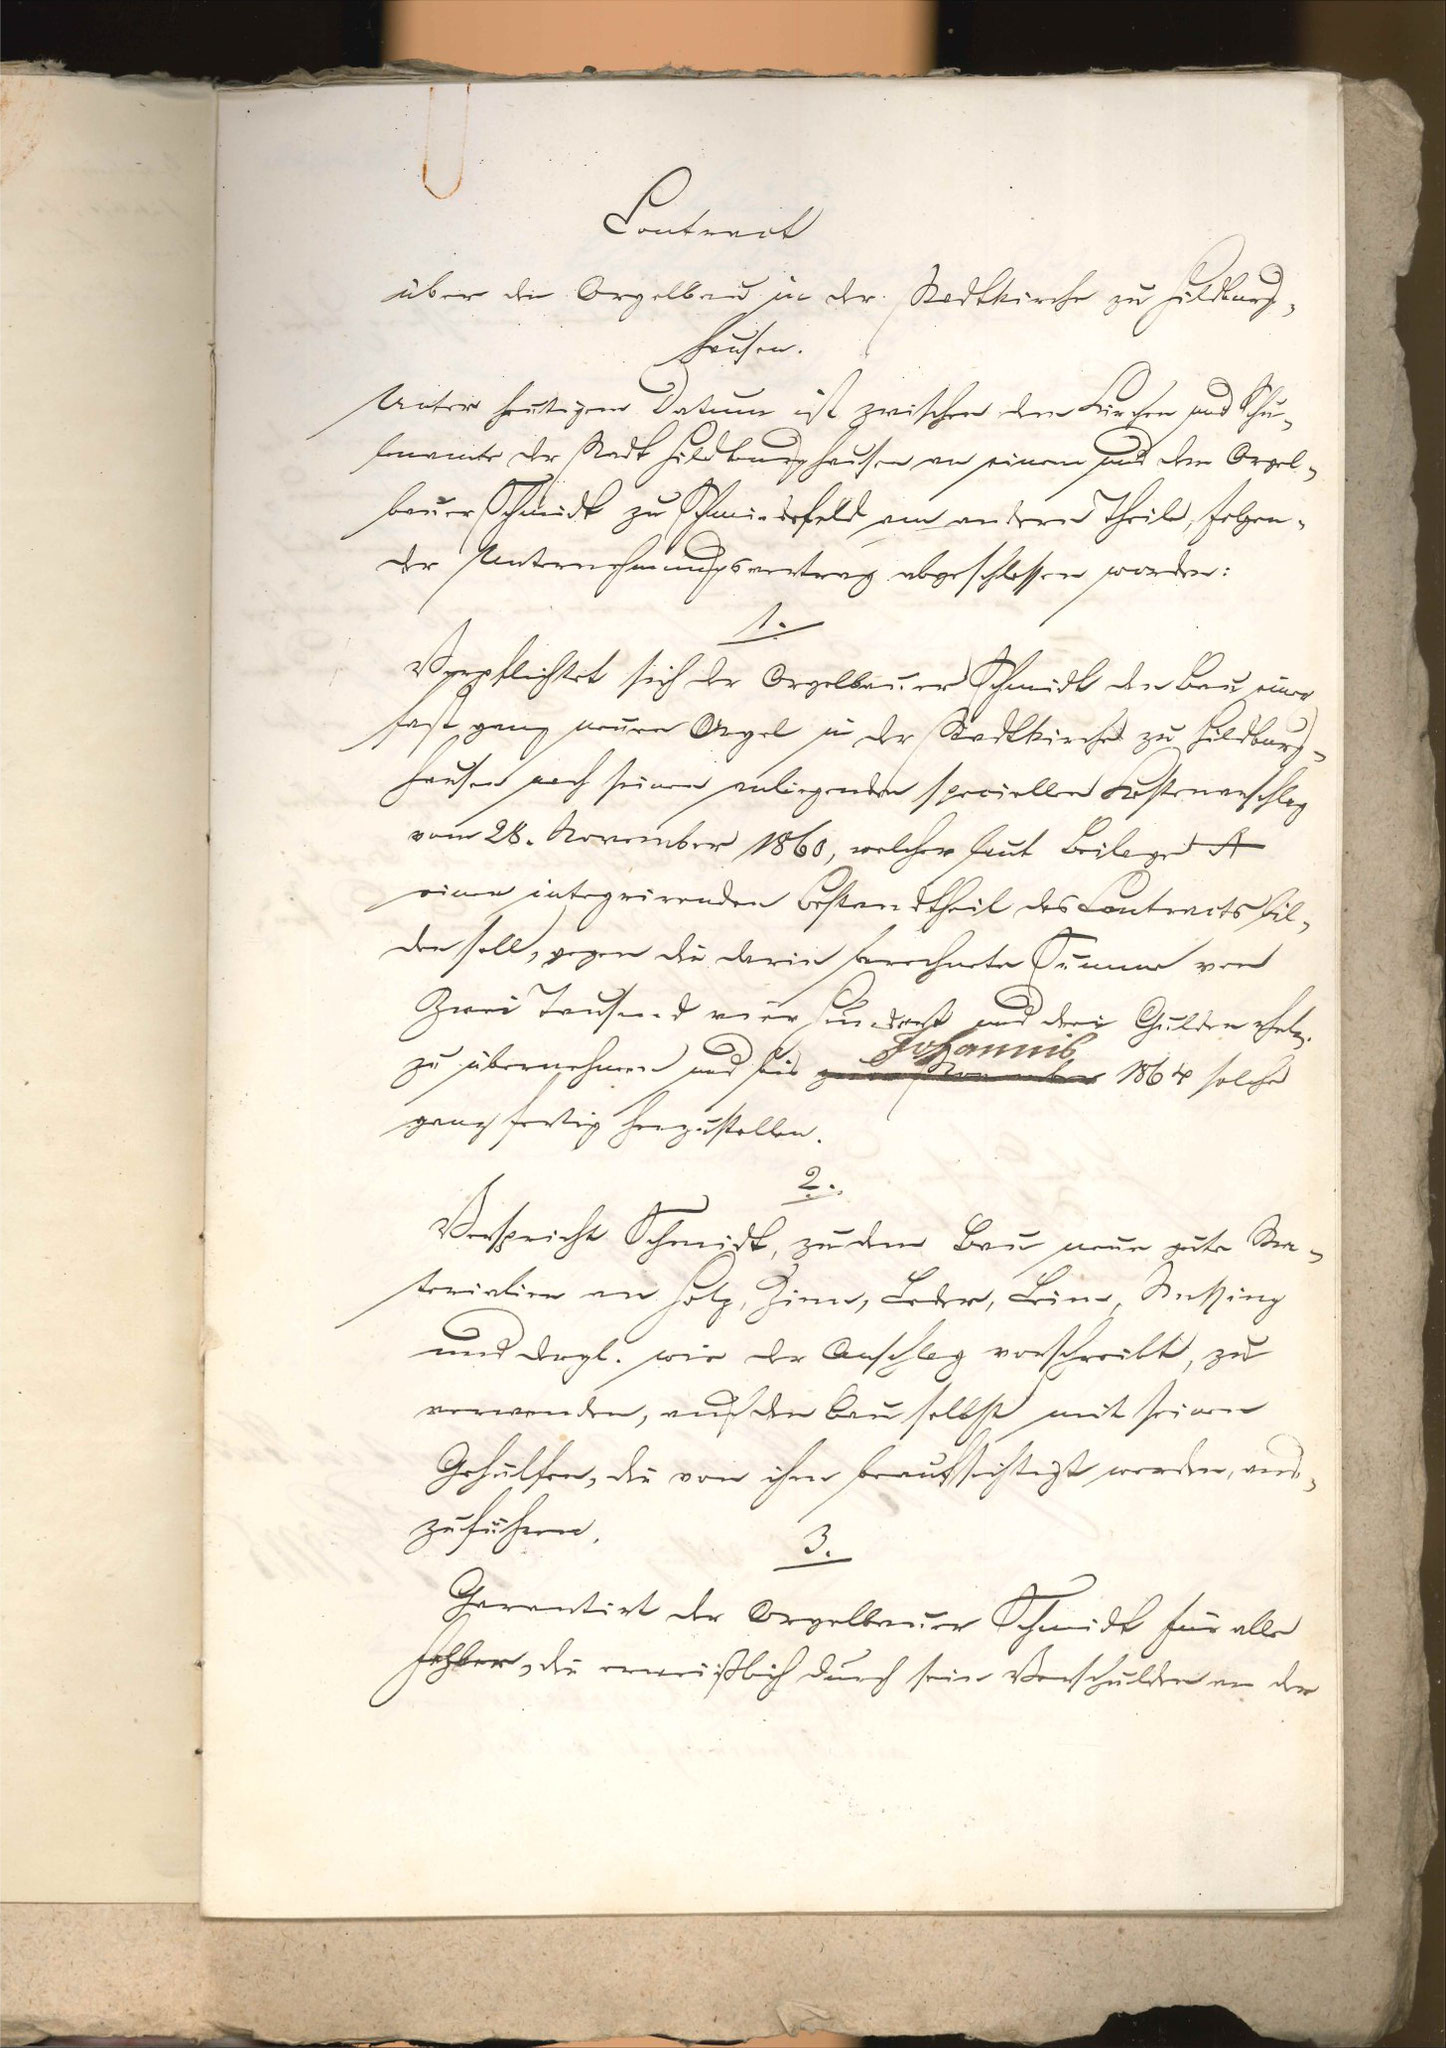 Contract
über den Orgelbau in der Stadtkirche zu Hildburg-
hausen.
Unter heutigem Datum ist zwischen dem Kirchen und Schu-
lenamte der Stadt Hildburghausen an einem und dem Orgel-
bauer Schmidt zu Schmiedefeld am andern Theile, folgen-
der Unternehmungsvertrag abgeschlossen worden:
1.
Verpflichtet sich der Orgelbauer Schmidt den Bau einer
fast ganz neuen Orgel in der Stadtkirche zu Hildburg-
hausen nach seinem anliegenden speciellen Kostenanschlag
vom 28. November 1860, welcher laut Beilage A
einen integrirenden Bestandtheil des Contracts bil-
den soll, gegen die darin berechnete Summe von
Zwei Tausend vier Hundert und drei Gulden rhein.
Johannis
zu übernehmen und bis zum November 1864 solche
ganz fertig herzustellen.
2.
Verspricht Schmidt, zu dem Bau neue gute Ma-
terialien an Holz, Zinn, Leder, Leim, Messing
und dergl. wie der Anschlag vorschreibt, zu
verwenden, auch den Bau selbst mit seinen
Gehülfen, die von ihm beaufsichtigt werden, aus-
zuführen.
3.
Garantirt der Orgelbauer Schmidt für alle
Fehler, die erweißlich durch sein Verschulden an der